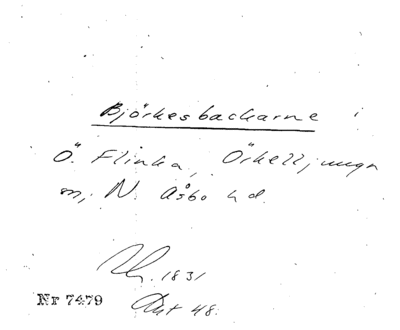 Björkesbackarne i
Ö. Flinka, Örkelljunga
m, N. Åsbo hd.
1831
Nr 7479 Akt 48.